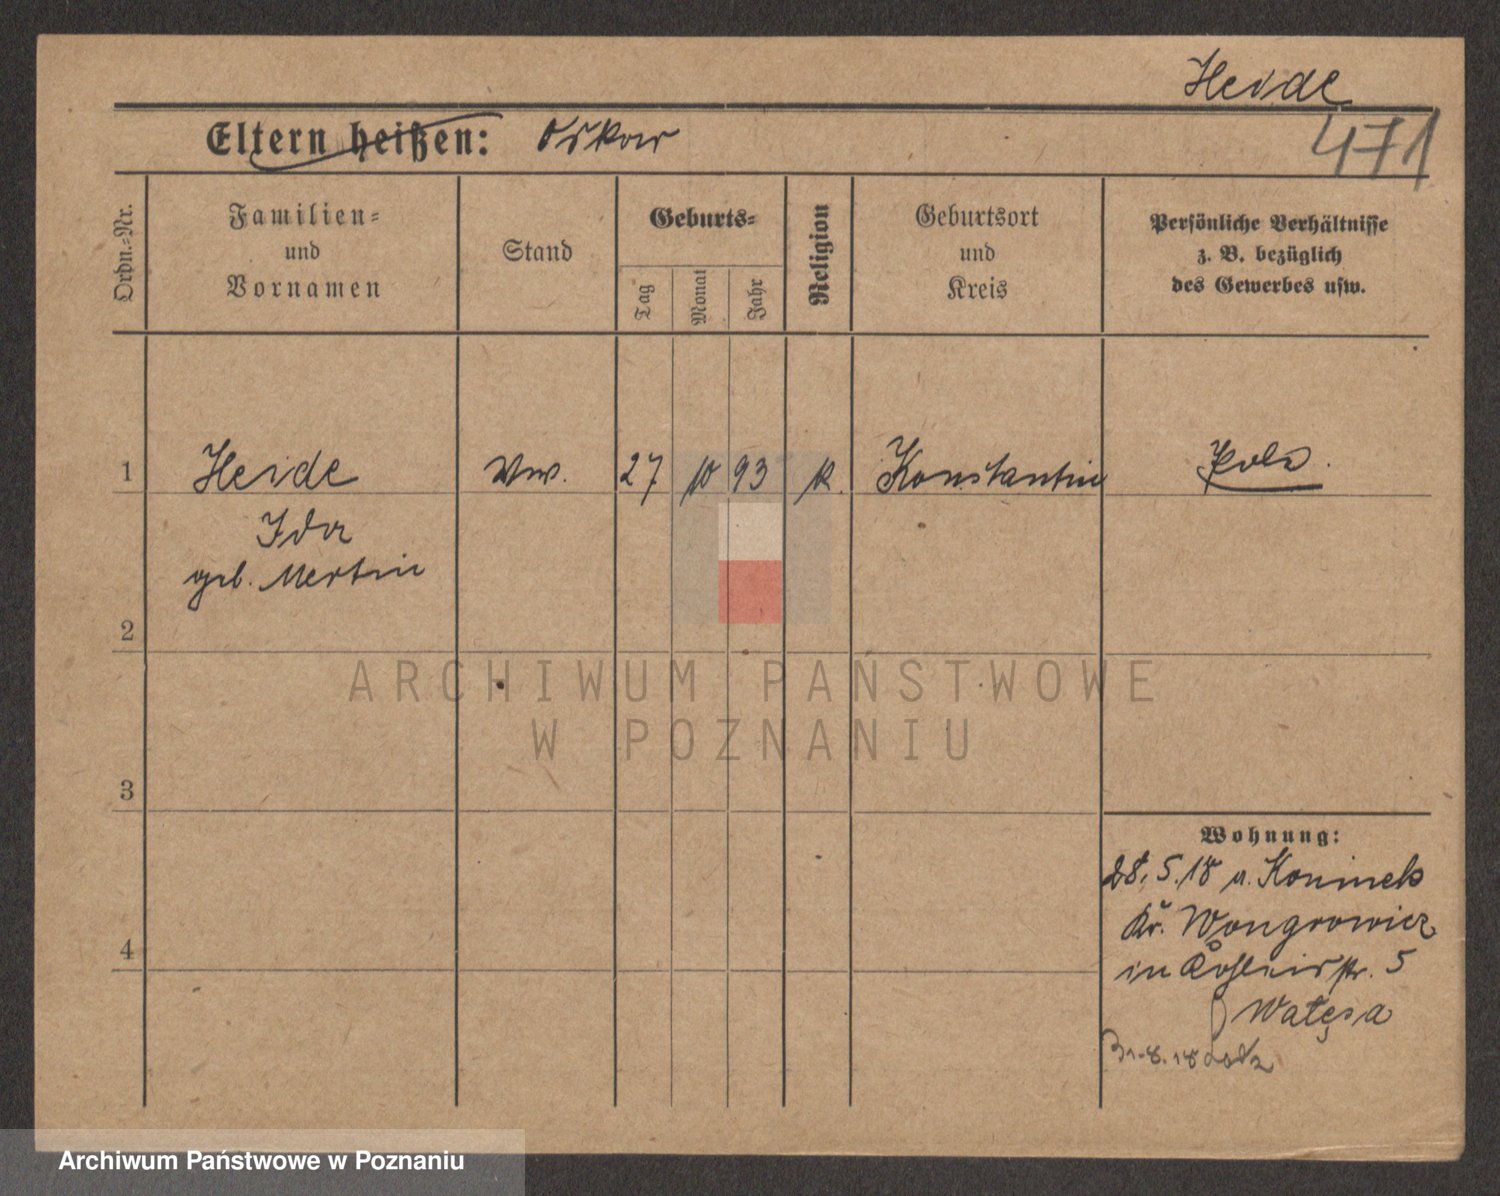 Heide
471
Eltern heißen: Oskar
Ordn.-Nr.
Familien-
und
Vornamen
Stand
Geburts-
Tag
Monat
Jahr
Religion
Geburtsort
und
Kreis
Persönliche Verhältnisse
z. B. bezüglich
des Gewerbes usw.
1
Heide
Ww.
27
10
93
k.
Konstantin
Pole.
Ida
geb. Mertin
2
ARCHIWUM PAŃSTWOWE
W POZNANIU
3
Wohnung:
28.5.18 a. Koninek
Kr. Wongrowicz
in str. 5
Watęsa
4
31.8.18 Lodz
Archiwum Państwowe w Poznaniu